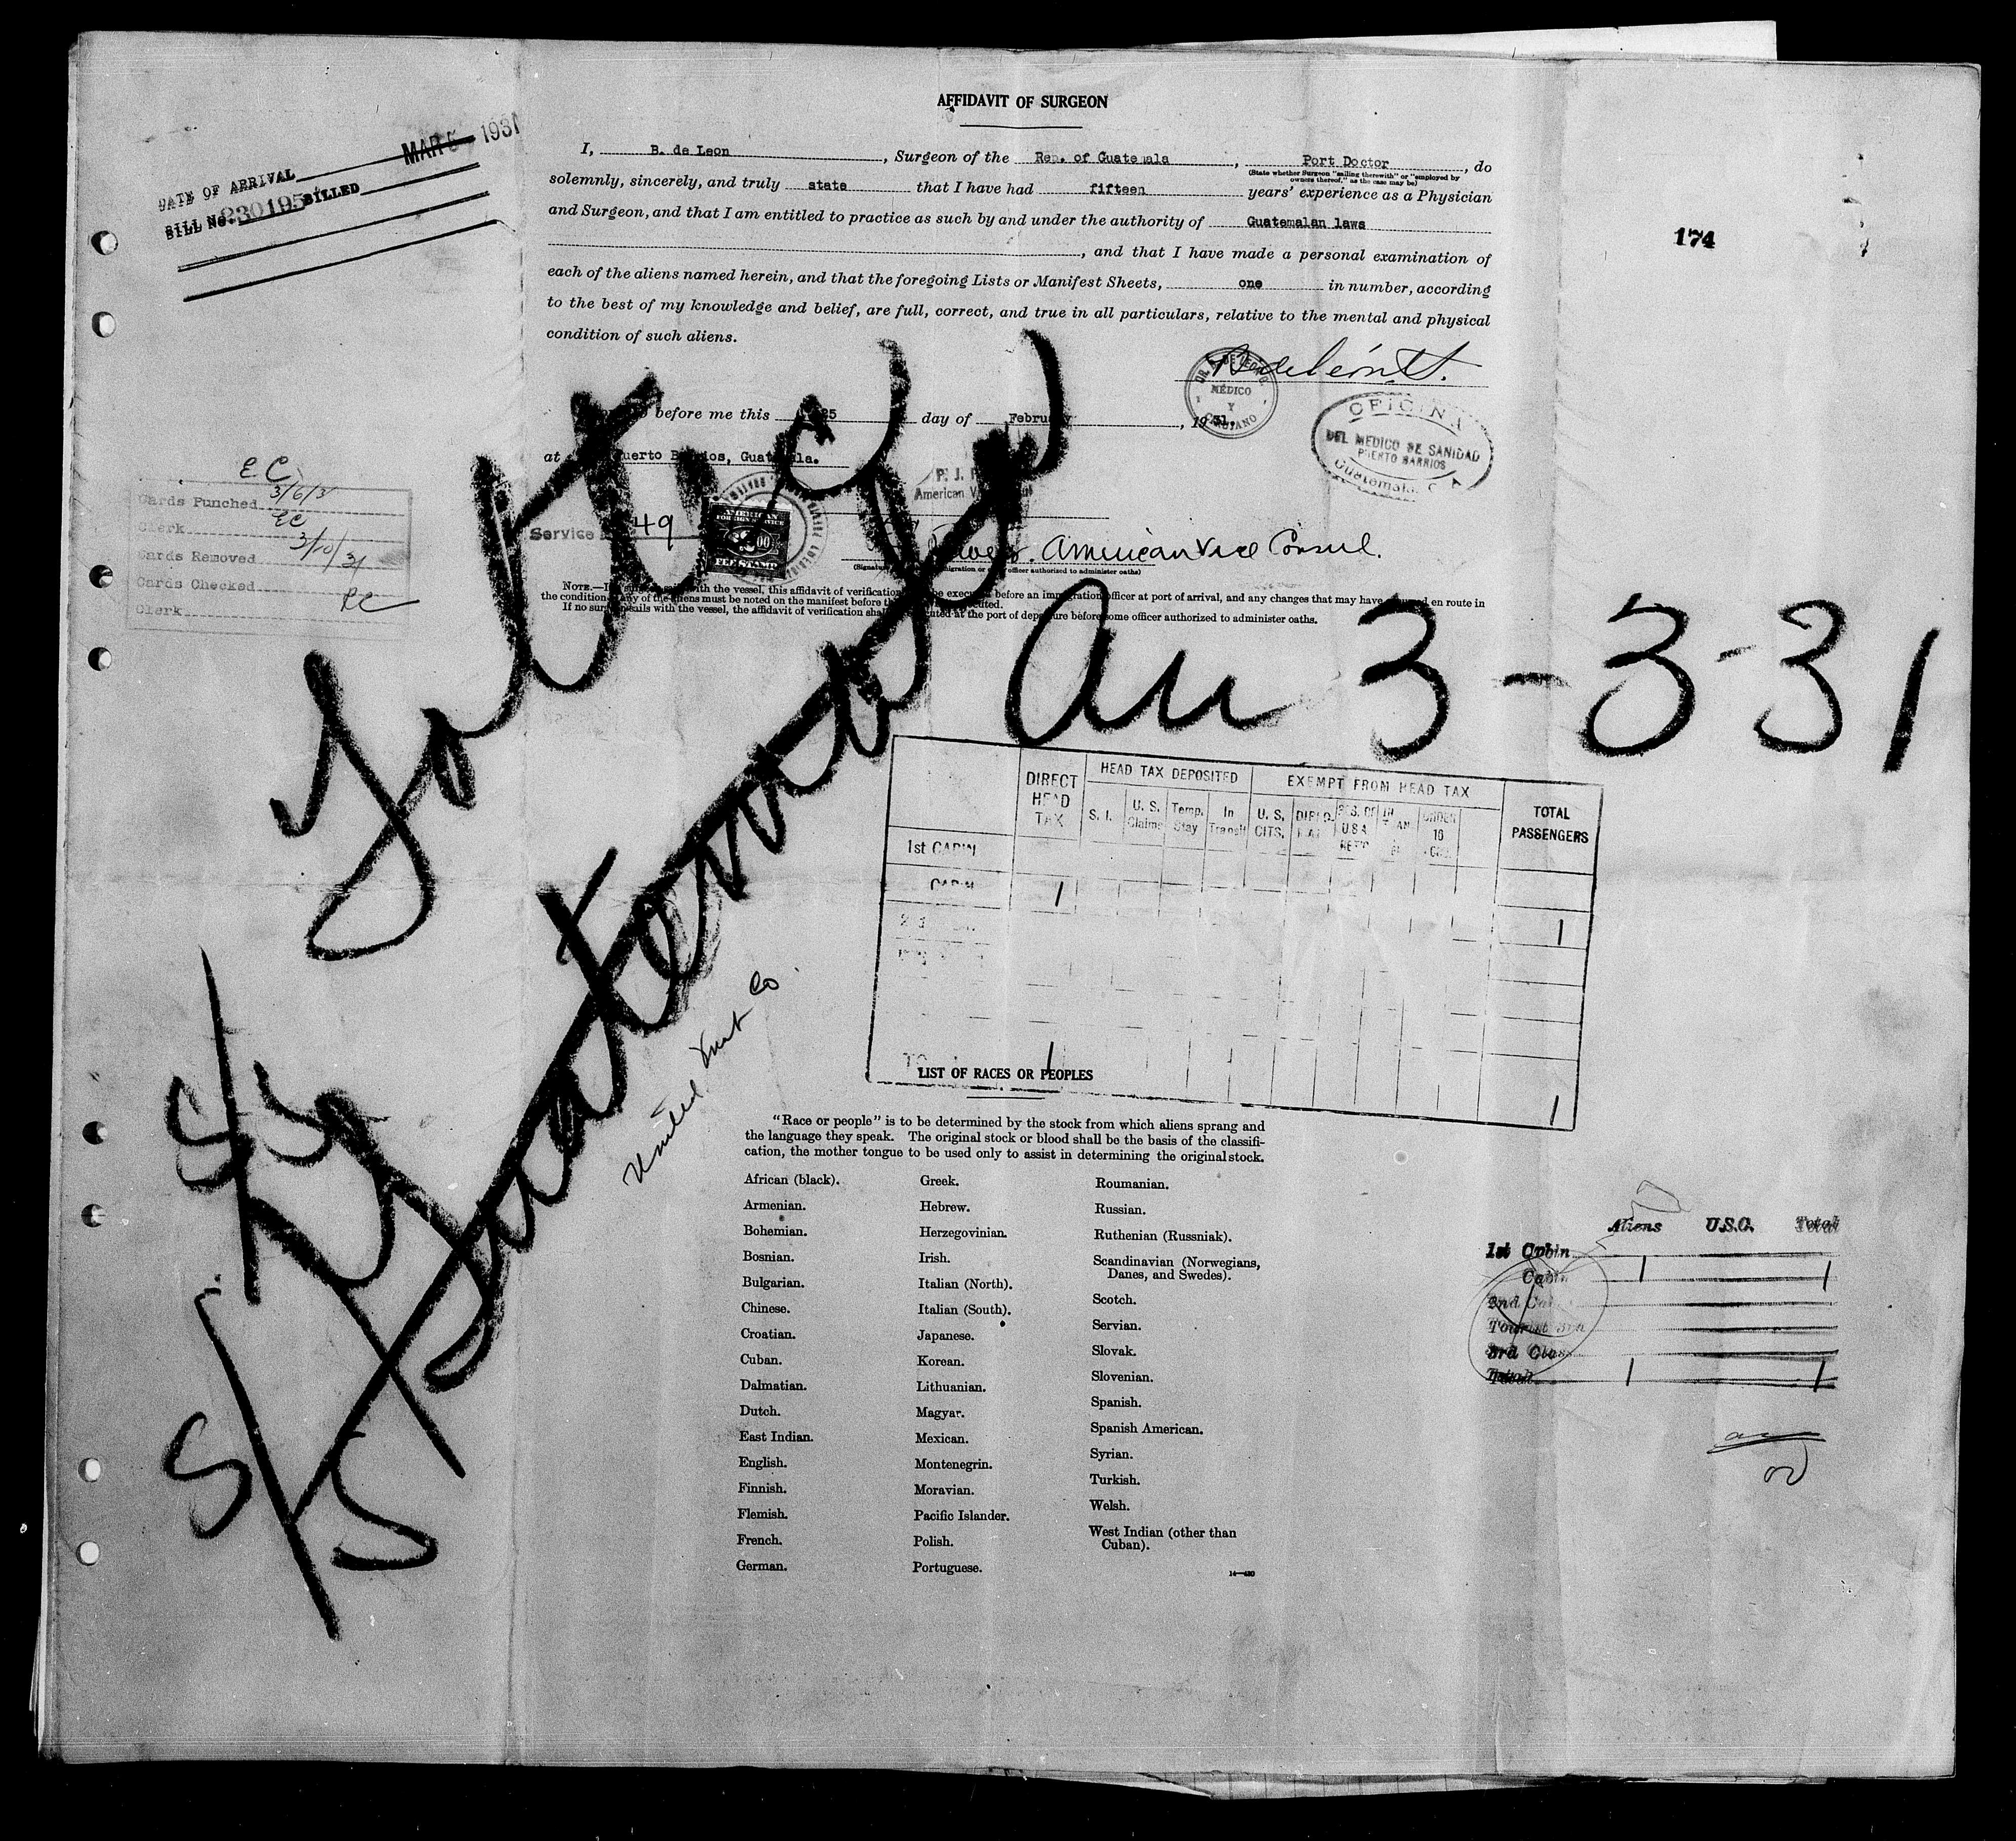 AFFIDAVIT OF SURGEON
DATE OF ARRIVAL MAR 5 1931
BILL No. 230195 BILLED
I, B. de Leon, Surgeon of the Rep. of Guatemala, Port Doctor, do
(State whether Surgeon "sailing therewith" or "employed by
owners thereof," as the case may be)
solemnly, sincerely, and truly state that I have had fifteen years' experience as a Physician
and Surgeon, and that I am entitled to practice as such by and under the authority of Guatemalan laws
, and that I have made a personal examination of
each of the aliens named herein, and that the foregoing Lists or Manifest Sheets, one in number, according
to the best of my knowledge and belief, are full, correct, and true in all particulars, relative to the mental and physical
condition of such aliens.
174
MÉDICO
Y
CIRUJANO
before me this 25 day of February, 1931.
at Puerto Barrios, Guatemala.
OFICINA
DEL MEDICO DE SANIDAD
PUERTO BARRIOS
Guatemala, C. A.
American Vice
Service 49
AMERICAN
FOREIGN SERVICE
$2.00
FEE STAMP
American Vice Consul.
E.C.
Cards Punched 3/6/31
Clerk EC
Cards Removed 3/10/31
Cards Checked
Clerk
NOTE.—If with the vessel, this affidavit of verification be executed before an immigration officer at port of arrival, and any changes that may have en route in
the condition of any of the aliens must be noted on the manifest before
If no surgeon sails with the vessel, the affidavit of verification shall be executed at the port of departure before some officer authorized to administer oaths.
3-3-31
DIRECT HEAD TAX
HEAD TAX DEPOSITED
EXEMPT FROM HEAD TAX
TOTAL PASSENGERS
S. I.
U. S. Claims
Temp. Stay
In Transit
U. S. CITS.
1st CABIN
CABIN 1
1
1
1
S/S
S/S
Guatemala
United Fruit Co.
LIST OF RACES OR PEOPLES
"Race or people" is to be determined by the stock from which aliens sprang and
the language they speak. The original stock or blood shall be the basis of the classifi-
cation, the mother tongue to be used only to assist in determining the original stock.
African (black).
Armenian.
Bohemian.
Bosnian.
Bulgarian.
Chinese.
Croatian.
Cuban.
Dalmatian.
Dutch.
East Indian.
English.
Finnish.
Flemish.
French.
German.
Greek.
Hebrew.
Herzegovinian.
Irish.
Italian (North).
Italian (South).
Japanese.
Korean.
Lithuanian.
Magyar.
Mexican.
Montenegrin.
Moravian.
Pacific Islander.
Polish.
Portuguese.
Roumanian.
Russian.
Ruthenian (Russniak).
Scandinavian (Norwegians,
Danes, and Swedes).
Scotch.
Servian.
Slovak.
Slovenian.
Spanish.
Spanish American.
Syrian.
Turkish.
Welsh.
West Indian (other than
Cuban).
14—430
Aliens U.S.C. Total
1st Cabin
Cabin 1 1
2nd Cabin
Tourist 3rd
3rd Class
Total 1 1